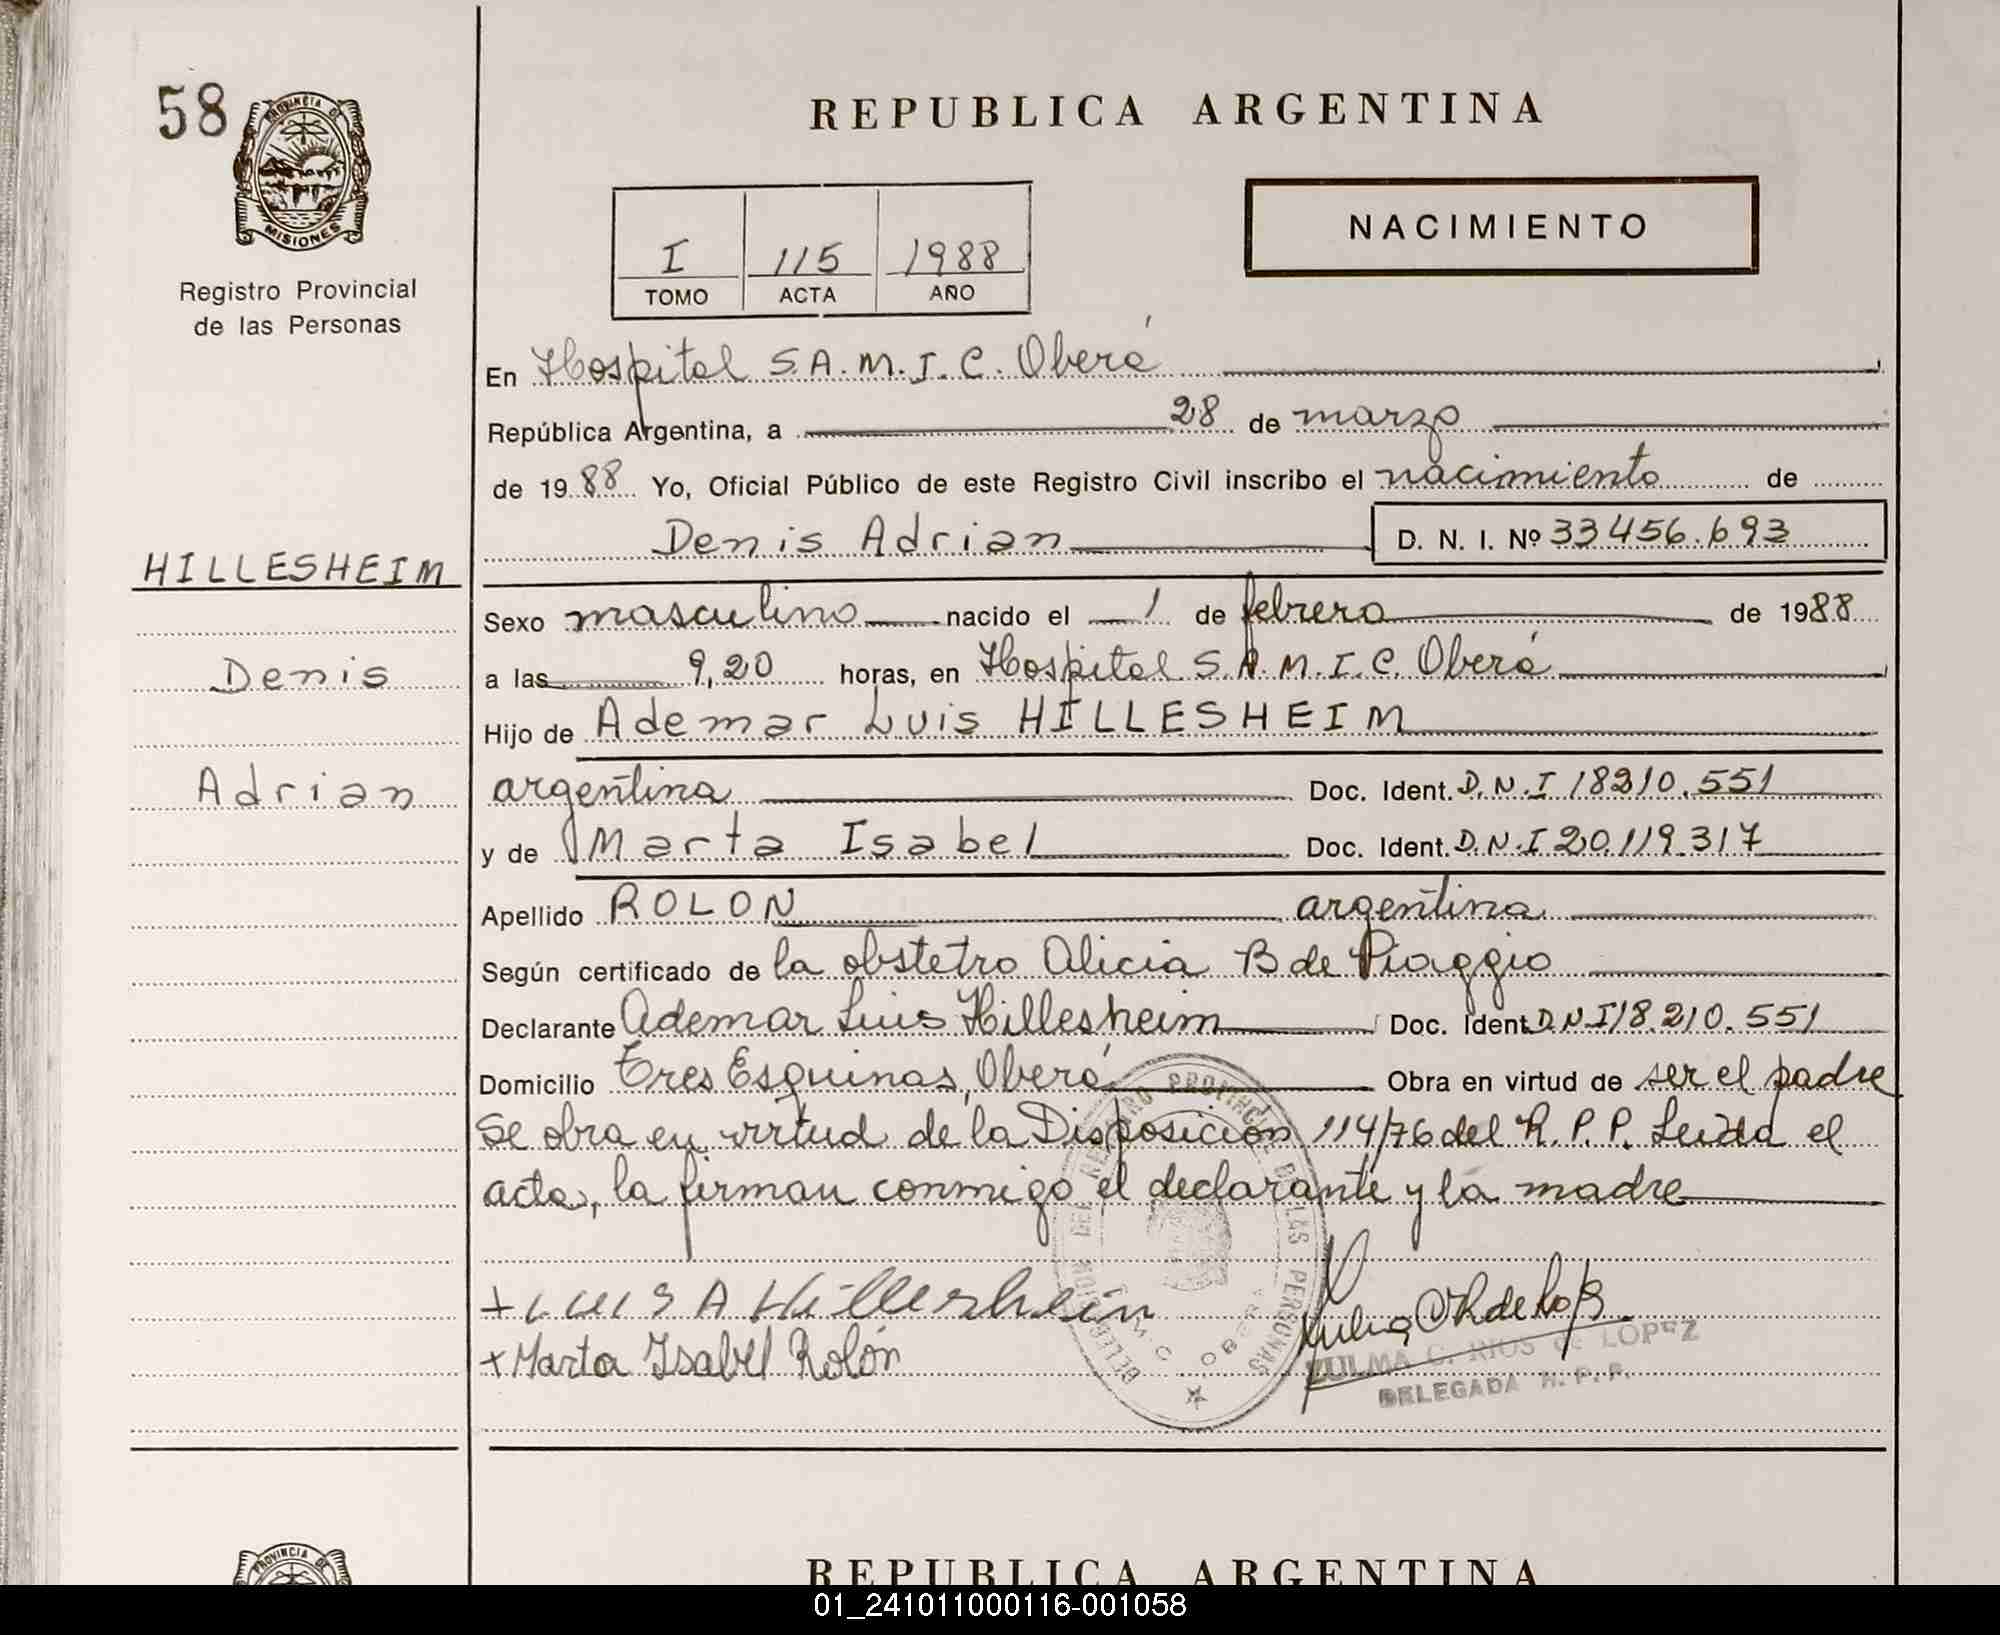 58
PROVINCIA DE
MISIONES
Registro Provincial
de las Personas
REPUBLICA ARGENTINA
NACIMIENTO
I 115 1988
TOMO ACTA AÑO
En Hospital S.A.M.I.C. Oberá
República Argentina, a 28 de marzo
de 1988 Yo, Oficial Público de este Registro Civil inscribo el nacimiento de
Denis Adrian D. N. I. Nº 33456.693
HILLESHEIM
Denis
Adrian
Sexo masculino nacido el 1 de febrero de 1988
a las 9,20 horas, en Hospital S.A.M.I.C. Oberá
Hijo de Ademar Luis HILLESHEIM
argentina Doc. Ident. D.N.I 18210.551
y de Marta Isabel Doc. Ident. D.N.I 20.119.317
Apellido ROLON argentina
Según certificado de la obstetro Alicia B de Piaggio
Declarante Ademar Luis Hillesheim Doc. Ident D N I 18.210.551
Domicilio Tres Esquinas, Oberá Obra en virtud de ser el padre
Se obra en virtud de la Disposición 114/76 del R.P.P. Leida el
acta, la firman conmigo el declarante y la madre
+ Luis A Hilleshein
+ Marta Isabel Rolón
ZULMA C. RIOS de LOPEZ
DELEGADA R. P. P.
PROVINCIA DE
REPUBLICA ARGENTINA
01_241011000116-001058